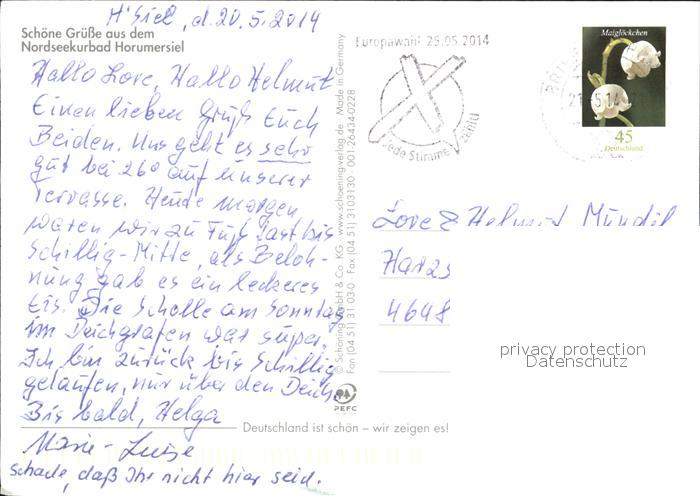 H'siel, d. 20.5.2014
Schöne Grüße aus dem
Nordseekurbad Horumersiel
Hallo Lore, Hallo Helmut
Einen lieben Gruß Euch
Beiden. Uns geht es sehr
gut bei 26° auf unserer
Terrasse. Heute morgen
waren wir zu Fuß fast bis
Schillig-Mitte, als Beloh-
nung gab es ein leckeres
Eis. Die Scholle am Sonntag
im Deichgrafen war super.
Ich bin zurück bis Schillig
gelaufen, nur über den Deich.
Bis bald, Helga
Marie-Luise
Schade, daß Ihr nicht hier seid.
© Schöning GmbH & Co. KG · www.schoeningverlag.de Made in Germany
Fon (04 51) 31 03-0 · Fax (04 51) 31 03130 · 001-26434-0228
PEFC
Deutschland ist schön – wir zeigen es!
Europawahl 25.05.2014
Jede Stimme zählt!
Maiglöckchen
45
Deutschland
Lore & Helmut Mündel
Harzs
4648
privacy protection
Datenschutz